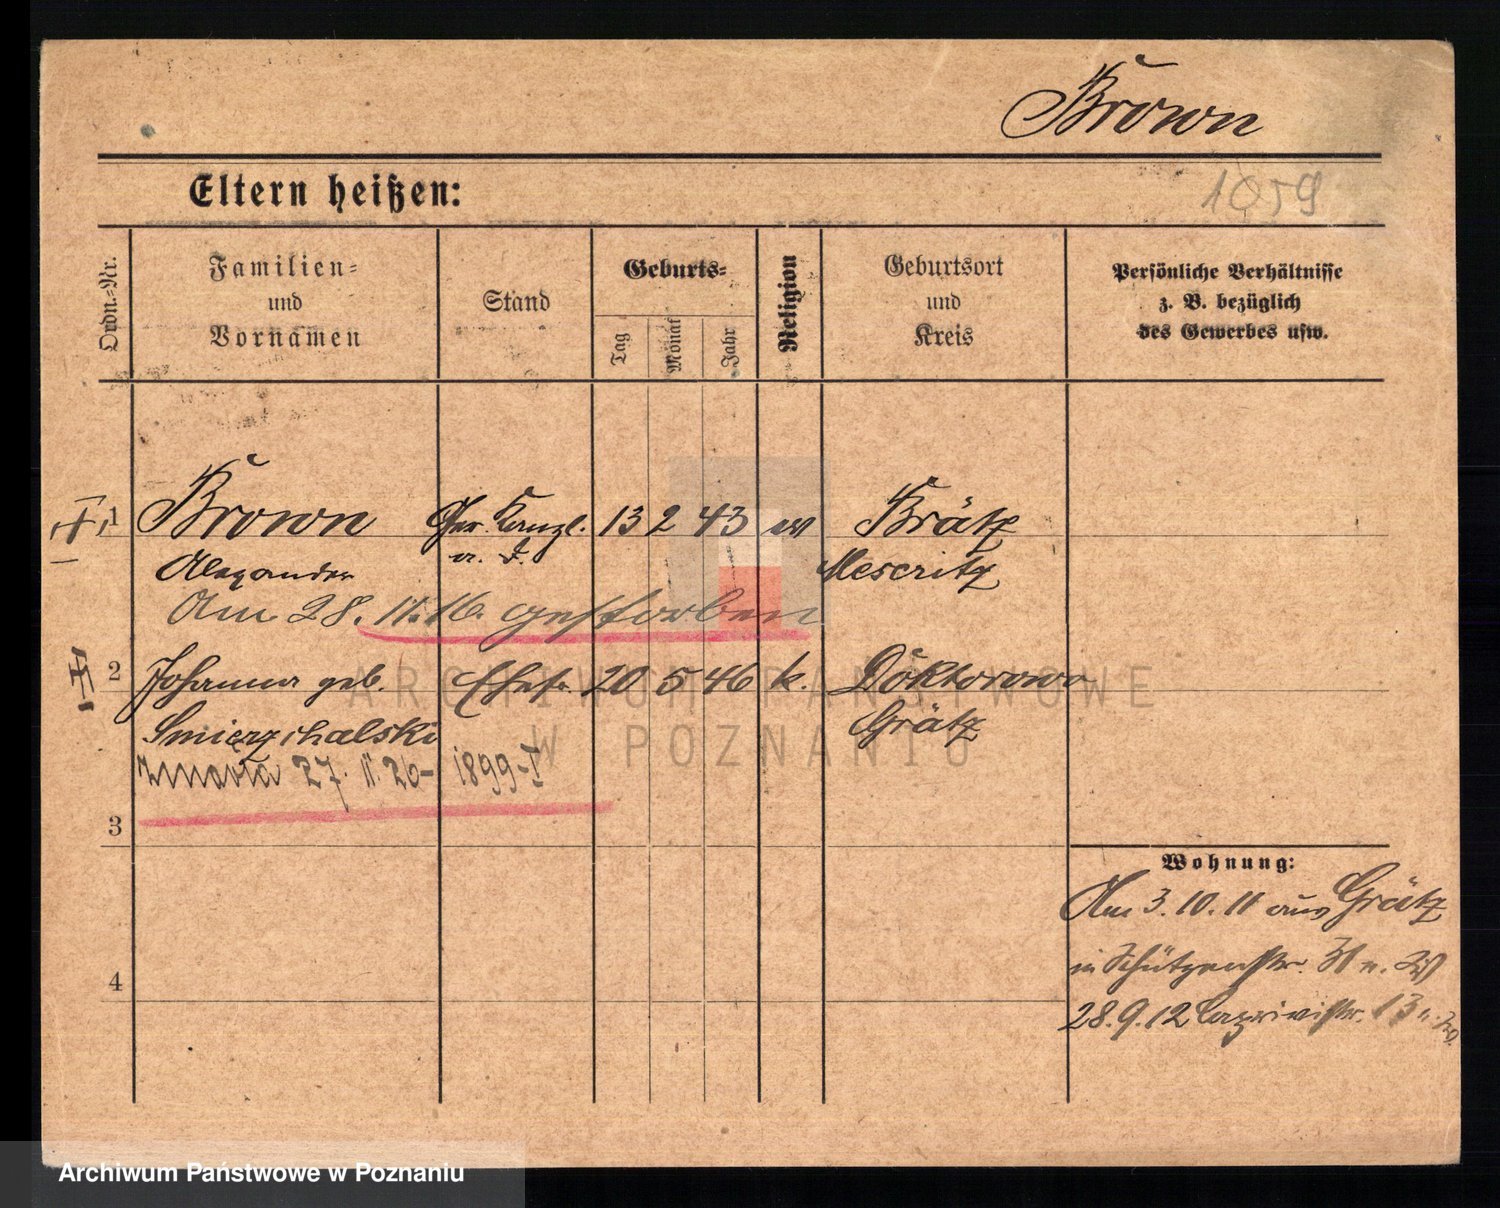 Brown
1059
Eltern heißen:
Ordn.-Nr.
Familien-
und
Vornamen
Stand
Geburts-
Tag
Monat
Jahr
Religion
Geburtsort
und
Kreis
Persönliche Verhältnisse
z. B. bezüglich
des Gewerbes usw.
1 Brown Ger. Kanzl. 13 2 43 ev Brätz
Alexander a. D. Meseritz
Am 28. 11. 16. gestorben
2 Johanna geb. Ehefr. 20 5 46 k. Doktorowo
Smierzchalski Grätz
zmarła 27. II. 26- 1899-I
3
4
Wohnung:
Am 3. 10. 11 aus Grätz
in Schützenstr. 31
28. 9. 12 13
ARCHIWUM PAŃSTWOWE
W POZNANIU
Archiwum Państwowe w Poznaniu